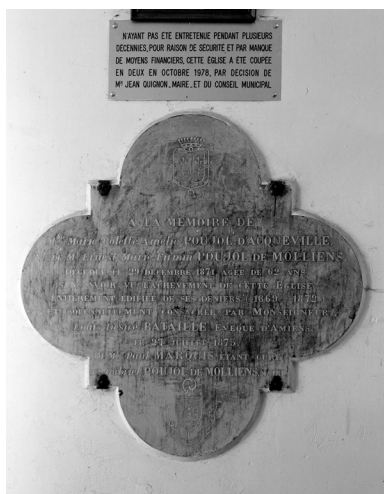 N'AYANT PAS ÉTÉ ENTRETENUE PENDANT PLUSIEURS
DÉCENNIES, POUR RAISON DE SÉCURITÉ ET PAR MANQUE
DE MOYENS FINANCIERS, CETTE ÉGLISE A ÉTÉ COUPÉE
EN DEUX EN OCTOBRE 1978, PAR DÉCISION DE
Mr JEAN QUIGNON, MAIRE, ET DU CONSEIL MUNICIPAL
A LA MÉMOIRE DE
Marie POUJOL D'ACQUEVILLE
Ernest Marie Firmin POUJOL DE MOLLIENS
DÉCÉDÉE LE 29 DÉCEMBRE 1871 AGÉE DE 62 ANS
AVOIR VU L'ACHÈVEMENT DE CETTE EGLISE
ENTIÈREMENT ÉDIFIÉE DE SES DENIERS (1869-1872)
CONSACRÉE PAR MONSEIGNEUR
BATAILLE EVÊQUE D'AMIENS
LE 27 JUILLET 1875
Mr Paul MARQUIS ÉTANT CURÉ
POUJOL DE MOLLIENS